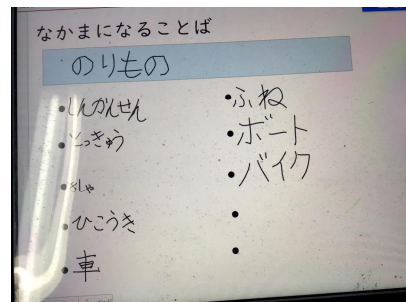 なかまになることば
のりもの
・しんかんせん
・とっきゅう
・きしゃ
・ひこうき
・車
・ふね
・ボート
・バイク
・
・